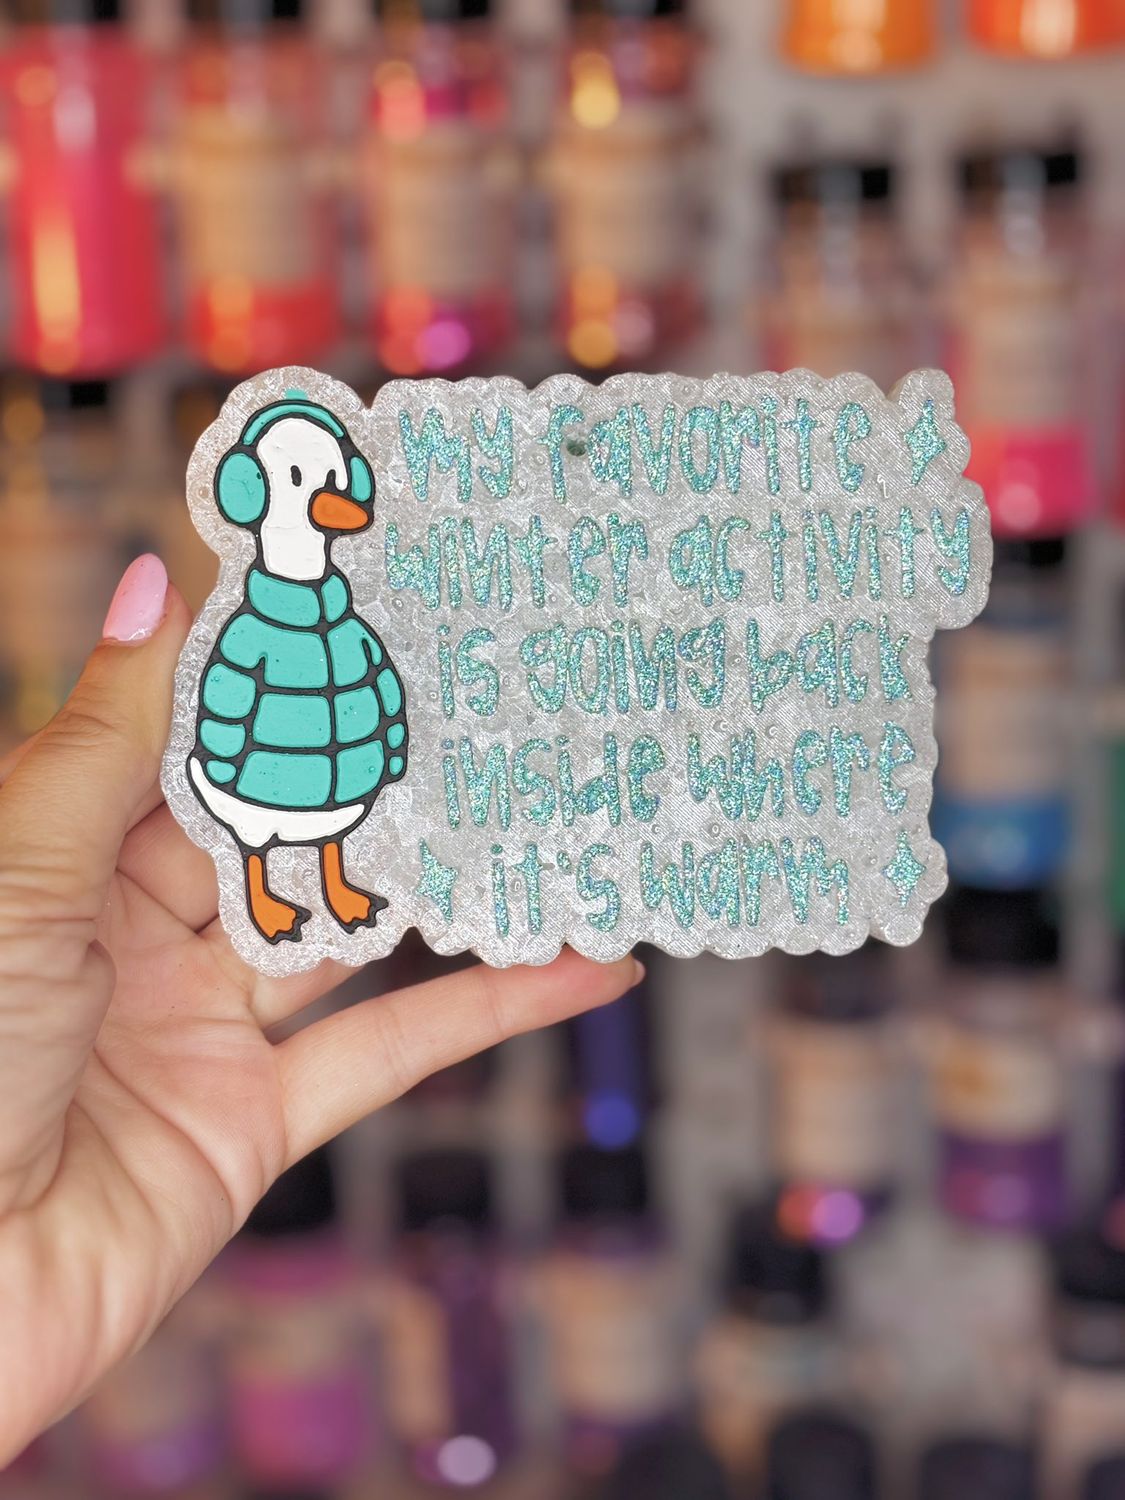 my favorite
winter activity
is going back
inside where
it's warm